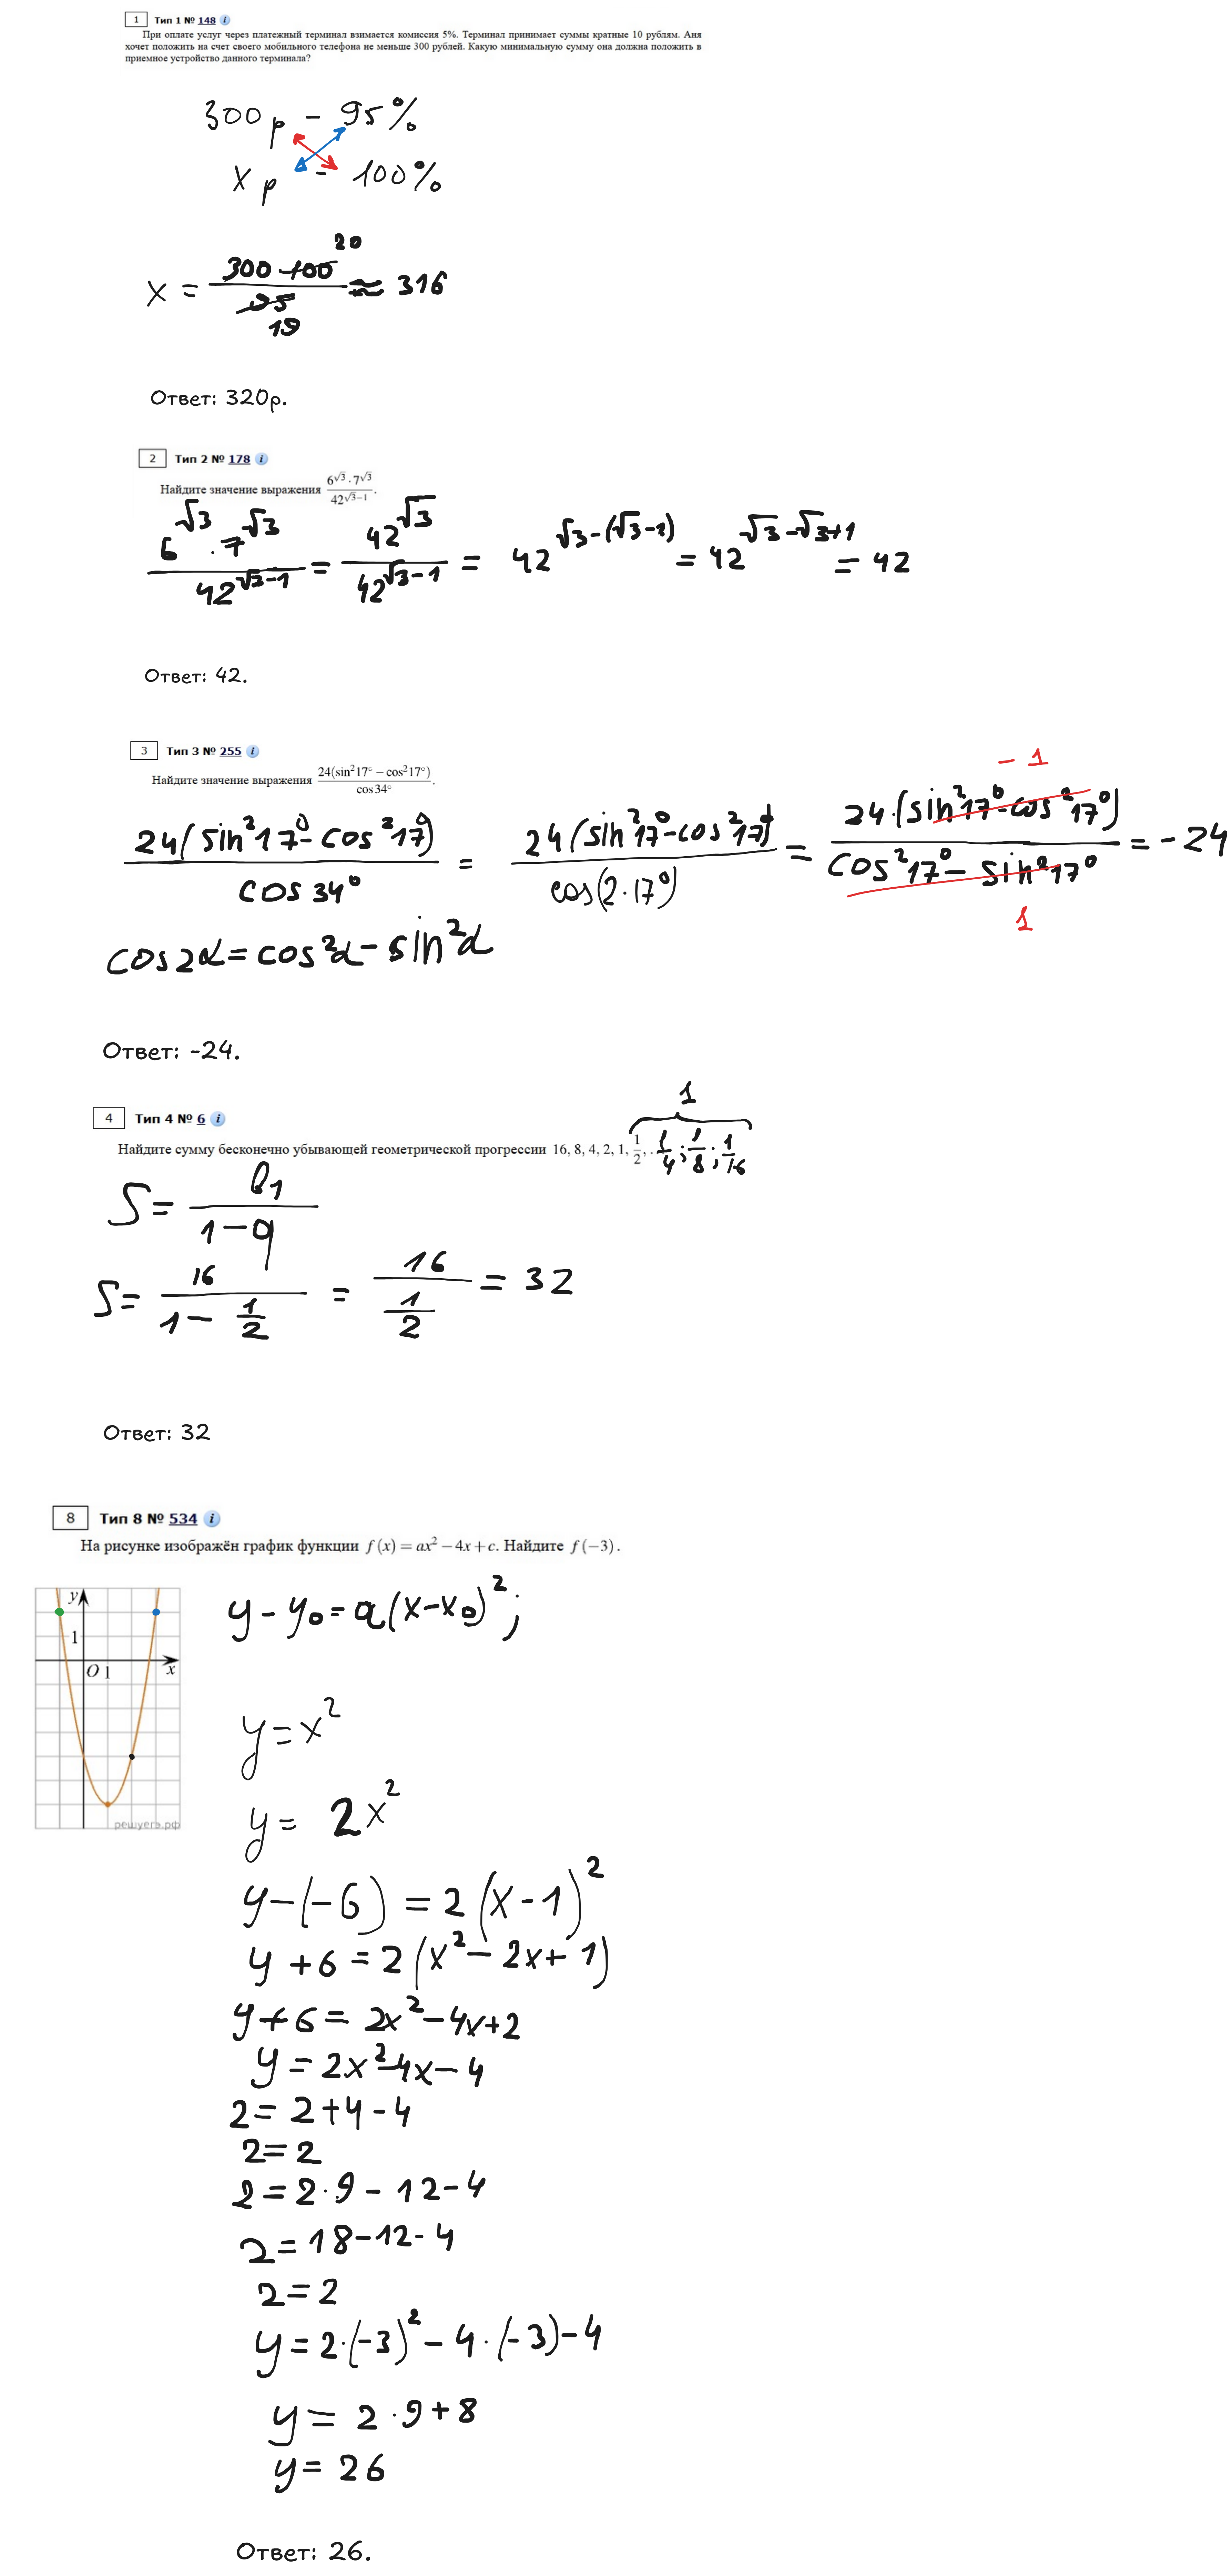 1 Тип 1 № 148 i
При оплате услуг через платежный терминал взимается комиссия 5%. Терминал принимает суммы кратные 10 рублям. Аня
хочет положить на счет своего мобильного телефона не меньше 300 рублей. Какую минимальную сумму она должна положить в
приемное устройство данного терминала?
300 р - 95%
x р - 100%
20
x = 300·100/95 ≈ 316
19
Ответ: 320р.
2 Тип 2 № 178 i
Найдите значение выражения (6^√3 · 7^√3)/(42^(√3−1)).
(6^√3 · 7^√3)/(42^(√3−1)) = 42^√3/42^(√3−1) = 42^(√3−(√3−1)) = 42^(√3−√3+1) = 42
Ответ: 42.
3 Тип 3 № 255 i
Найдите значение выражения 24(sin²17° − cos²17°)/cos34°.
-1
24(sin²17° − cos²17°)/cos34° = 24(sin²17° − cos²17°)/cos(2·17°) = 24·(sin²17° − cos²17°)/(cos²17° − sin²17°) = -24
1
cos2α = cos²α − sin²α
Ответ: -24.
1
4 Тип 4 № 6 i
Найдите сумму бесконечно убывающей геометрической прогрессии 16, 8, 4, 2, 1, 1/2, . 1/4; 1/8; 1/16
S = b₁/(1−q)
S = 16/(1 − 1/2) = 16/(1/2) = 32
Ответ: 32
8 Тип 8 № 534 i
На рисунке изображён график функции f(x) = ax² − 4x + c. Найдите f(−3).
y
1
O 1 x
решуегэ.рф
y − y₀ = a(x−x₀)²;
y = x²
y = 2x²
y−(−6) = 2(x−1)²
y+6 = 2(x²−2x+1)
y+6 = 2x²−4x+2
y = 2x²−4x−4
2 = 2+4−4
2=2
2 = 2·9−12−4
2 = 18−12−4
2=2
y = 2·(−3)²−4·(−3)−4
y = 2·9+8
y = 26
Ответ: 26.